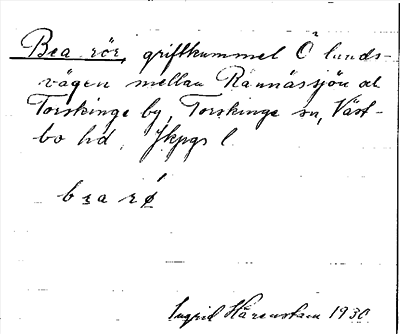 Bsa rör, griftkummel Ö lands-
vägen mellan Rannässjön o
Torskinge by, Torskinge sn, Väst-
bo hd, Jkpgs l.
bsa rø
Ingrid Härenstam 1930